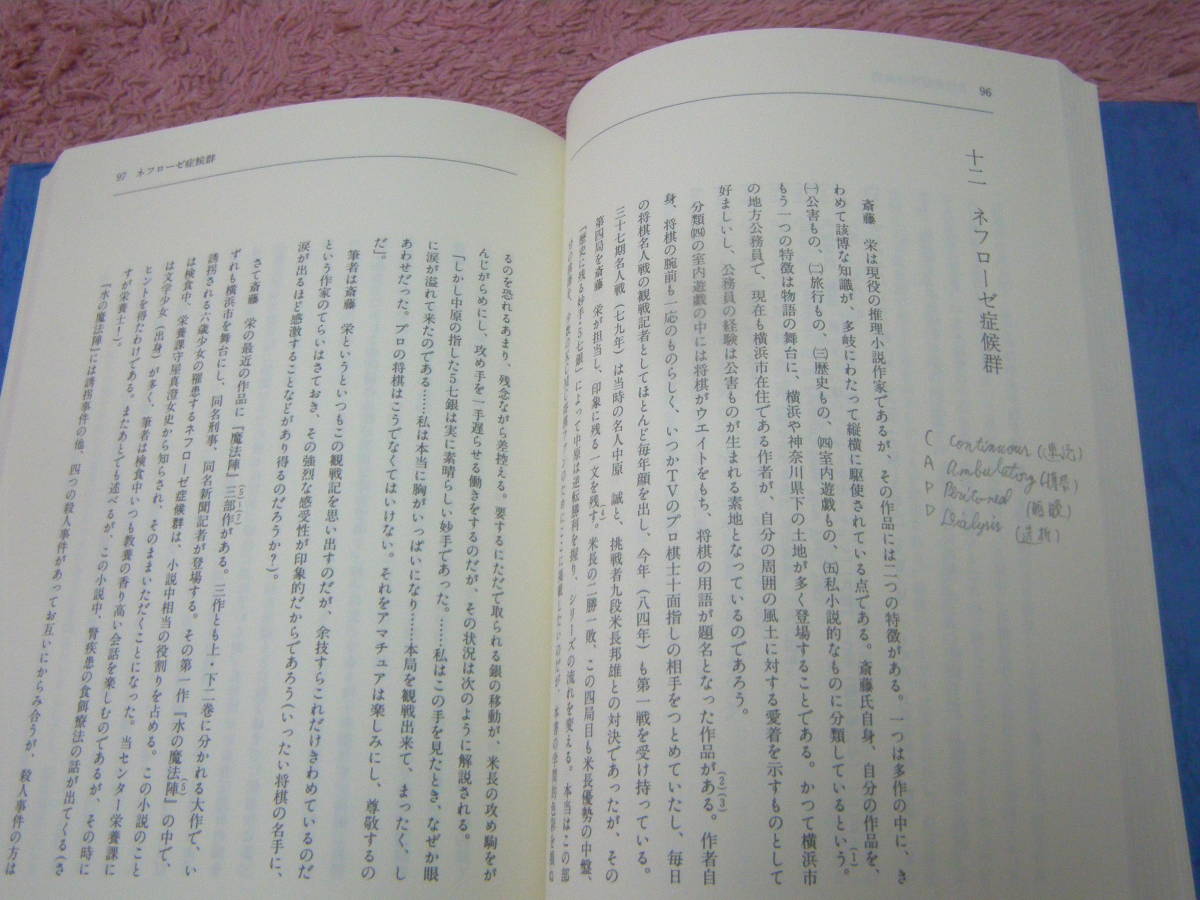 96
十二 ネフローゼ症候群
C Continuous (連続)
A Ambulatory (携帯)
P Peritoneal (腹膜)
D Dialysis (透析)
斎藤 栄は現役の推理小説作家であるが、その作品には二つの特徴がある。一つは多作の中に、き
わめて該博な知識が、多岐にわたって縦横に駆使されている点である。斎藤氏自身、自分の作品を、
㈠公害もの、㈡旅行もの、㈢歴史もの、㈣室内遊戯もの、㈤私小説的なものに分類しているという。(1)
もう一つの特徴は物語の舞台に、横浜や神奈川県下の土地が多く登場することである。かつて横浜市
の地方公務員で、現在も横浜市在住である作者が、自分の周囲の風土に対する愛着を示すものとして
好ましいし、公務員の経験は公害ものが生まれる素地となっているのであろう。
分類㈣の室内遊戯の中には将棋がウエイトをもち、将棋の用語が題名となった作品がある。(2)(3)作者自
身、将棋の腕前も一応のものらしく、いつかTVのプロ棋士十面指しの相手をつとめていたし、毎日
の将棋名人戦の観戦記者としてほとんど毎年顔を出し、今年(八四年)も第一戦を受け持っている。
三十七期名人戦(七九年)は当時の名人中原 誠と、挑戦者九段米長邦雄との対決であったが、その
第四局を斎藤 栄が担当し、印象に残る一文を残す。(4)米長の二勝一敗、この四局目も米長優勢の中盤、
「歴史に残る妙手・5七銀」によって中原は逆転勝利を握り、シリーズの流れを変える。本当はこの部
97 ネフローゼ症候群
るのを恐れるあまり、残念ながら差控える。要するにただで取られる銀の移動が、米長の攻め駒をが
んじがらめにし、攻め手を一手遅らせる働きをするのだが、その状況は次のように解説される。
「しかし中原の指した5七銀は実に素晴らしい妙手であった。……私はこの手を見たとき、なぜか眼
に涙が溢れて来たのである……私は本当に胸がいっぱいになり……本局を観戦出来て、まったく、し
あわせだった。プロの将棋はこうでなくてはいけない。それをアマチュアは楽しみにし、尊敬するの
だ」。
筆者は斎藤 栄というといつもこの観戦記を思い出すのだが、余技すらこれだけきわめているのだ
という作家のてらいはさておき、その強烈な感受性が印象的だからであろう(いったい将棋の名手に、
涙が出るほど感激することなどがあり得るのだろうか?)。
さて斎藤 栄の最近の作品に『魔法陣』三部作がある。(5)-(7)三作とも上・下二巻に分かれる大作で、い
ずれも横浜市を舞台にし、同名刑事、同名新聞記者が登場する。その第一作『水の魔法陣』(5)の中で、
誘拐される六歳少女の罹患するネフローゼ症候群は、小説中相当の役割りを占める。この小説のこと
は検食中、栄養課守屋真澄女史から知らされ、そのままいただくことになった。当センター栄養課に
は文学少女(出身)が多く、筆者は検食中いつも教養の香り高い会話を楽しむのであるが、その時に
ヒントを得たわけである。またあとでも述べるが、この小説中、腎疾患の食餌療法の話が出てくる(さ
すが栄養士!)。
『水の魔法陣』には誘拐事件の他、四つの殺人事件があってお互いにからみ合うが、殺人事件の方は